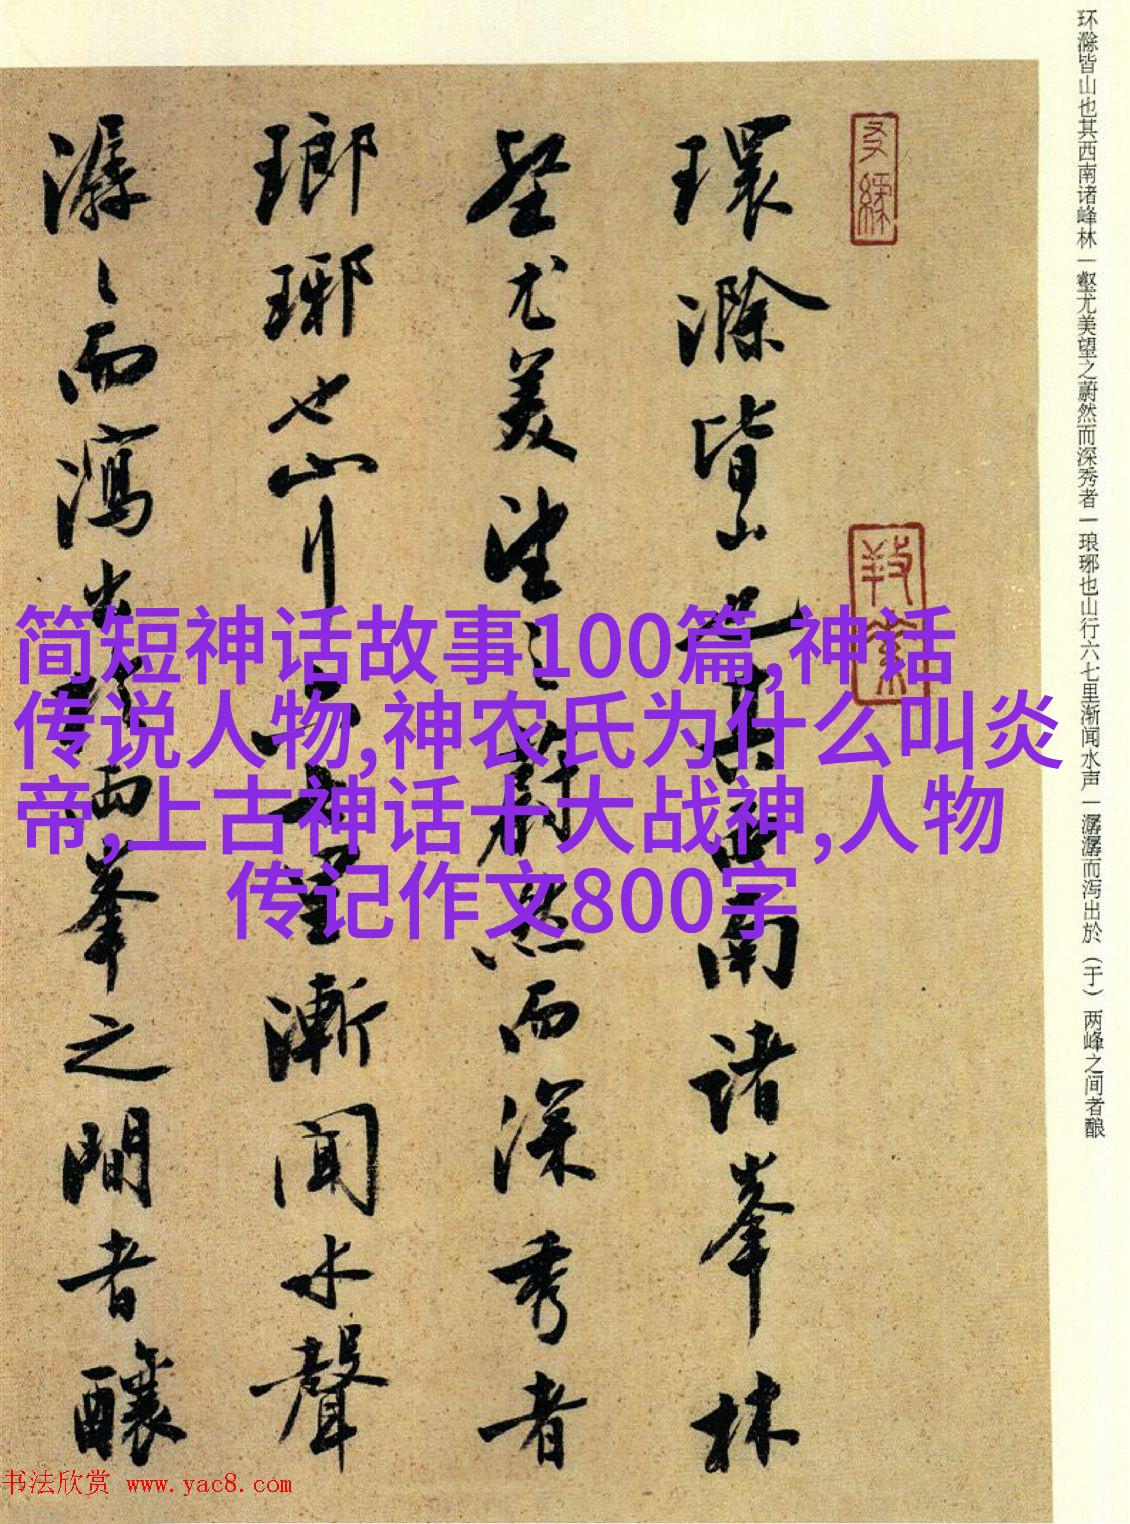 环滁皆山也其西南诸峰林一壑尤美望之蔚然而深秀者一琅琊也山行六七里渐闻水声一潺潺而泻出於（于）两峰之间者酿
環滁皆山也其西南諸峯林
壑尤美望之蔚然而深秀者
瑯琊也山行六七里漸聞水聲
潺々而瀉出於兩峯之間者釀
简短神话故事100篇,神话
传说人物,神农氏为什么叫炎
帝,上古神话十大战神,人物
传记作文800字
书法欣赏 www.yac8.com